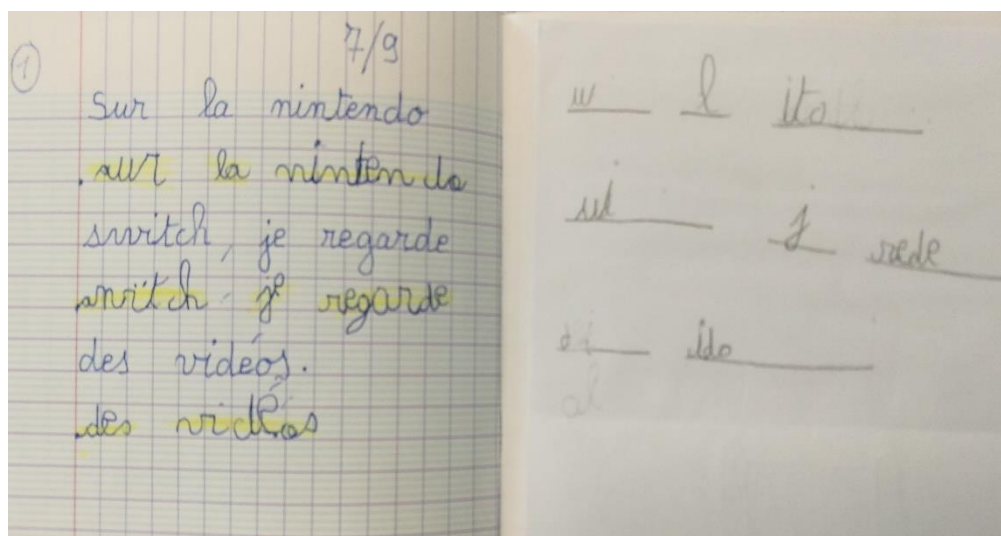 7/9
1
Sur la nintendo
sur la nintendo
switch, je regarde
switch, je regarde
des vidéos.
des vidéos
u l ito
ui j rede
ido